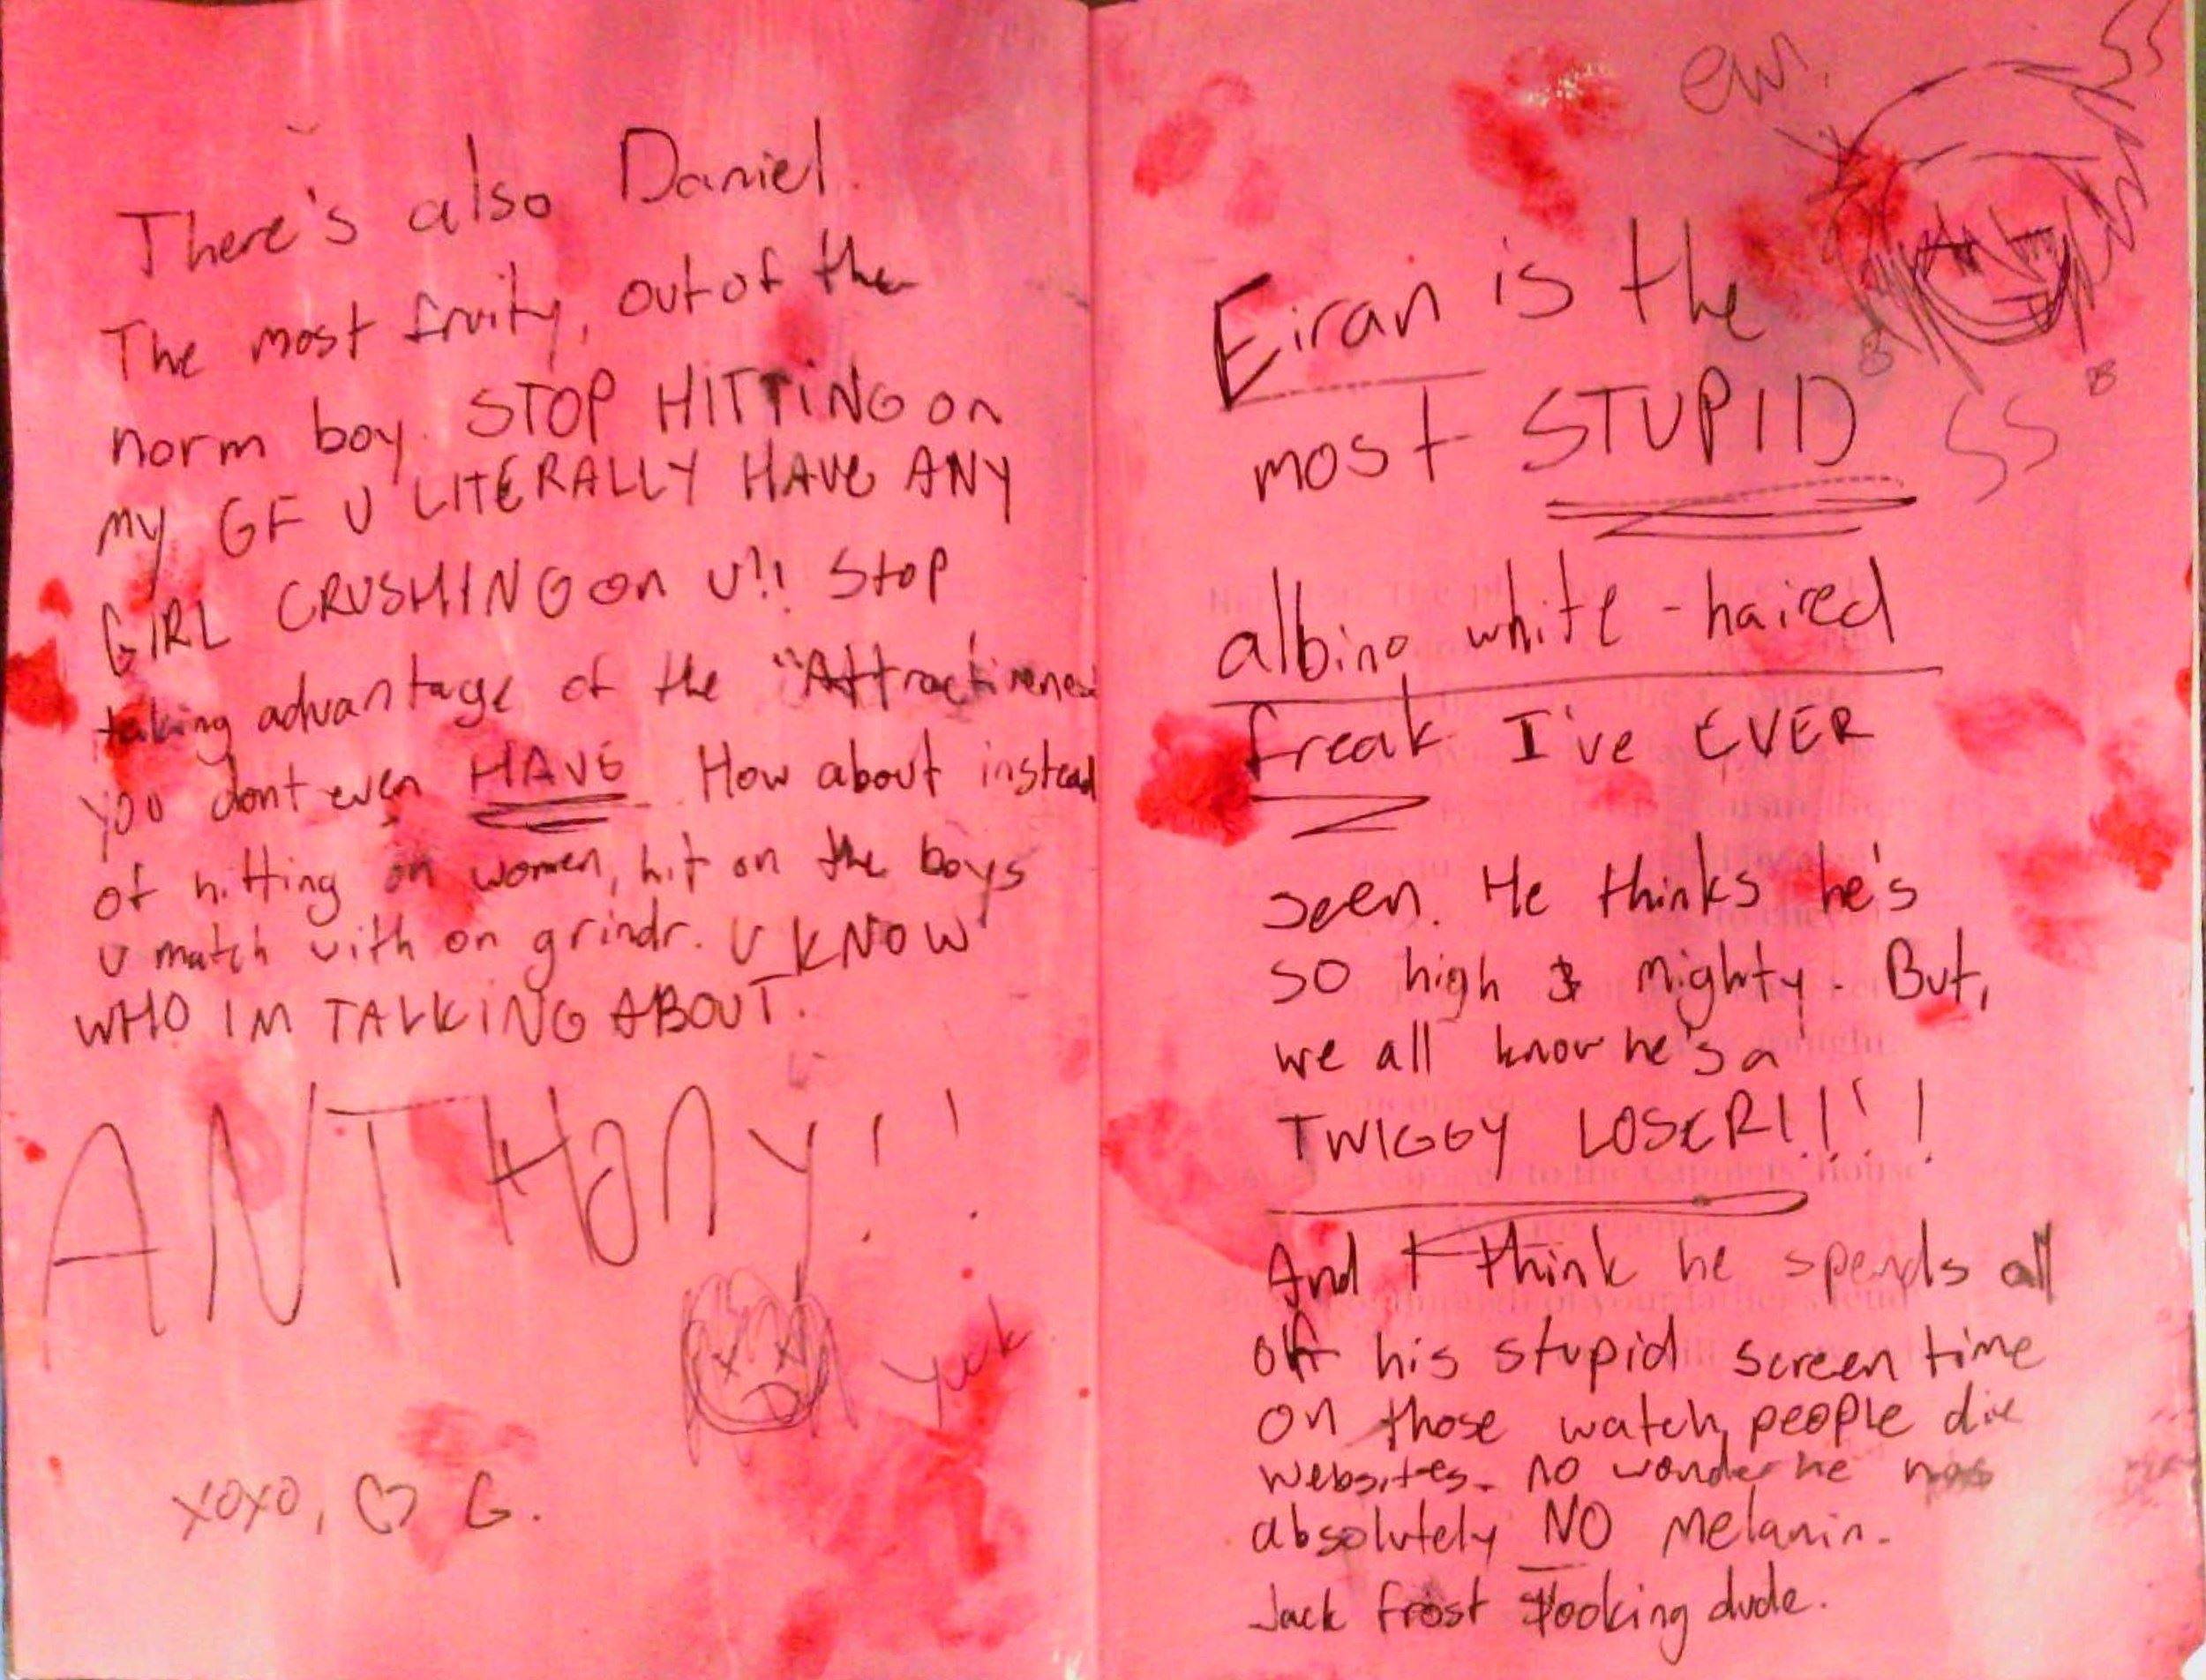 There's also Daniel.
The most fruity, out of the
norm boy. STOP HITTING on
my GF U LITERALLY HAVE ANY
GIRL CRUSHING on U!! Stop
taking advantage of the "Attractivenes
you dont even HAVE. How about instead
of hitting on women, hit on the boys
u match with on grindr. U KNOW
WHO IM TALKING ABOUT.
ANTHony!!
yuck
xoxo, ♡ G.
ew.
Eiran is the
most STUPID
albino white-haired
freak I've EVER
seen. He thinks he's
so high & mighty. But,
we all know he's a
TWIGGY LOSER!!!!
And I think he spends all
off his stupid screen time
on those watch people die
websites. no wonder he has
absolutely NO melanin.
Jack frost looking dude.